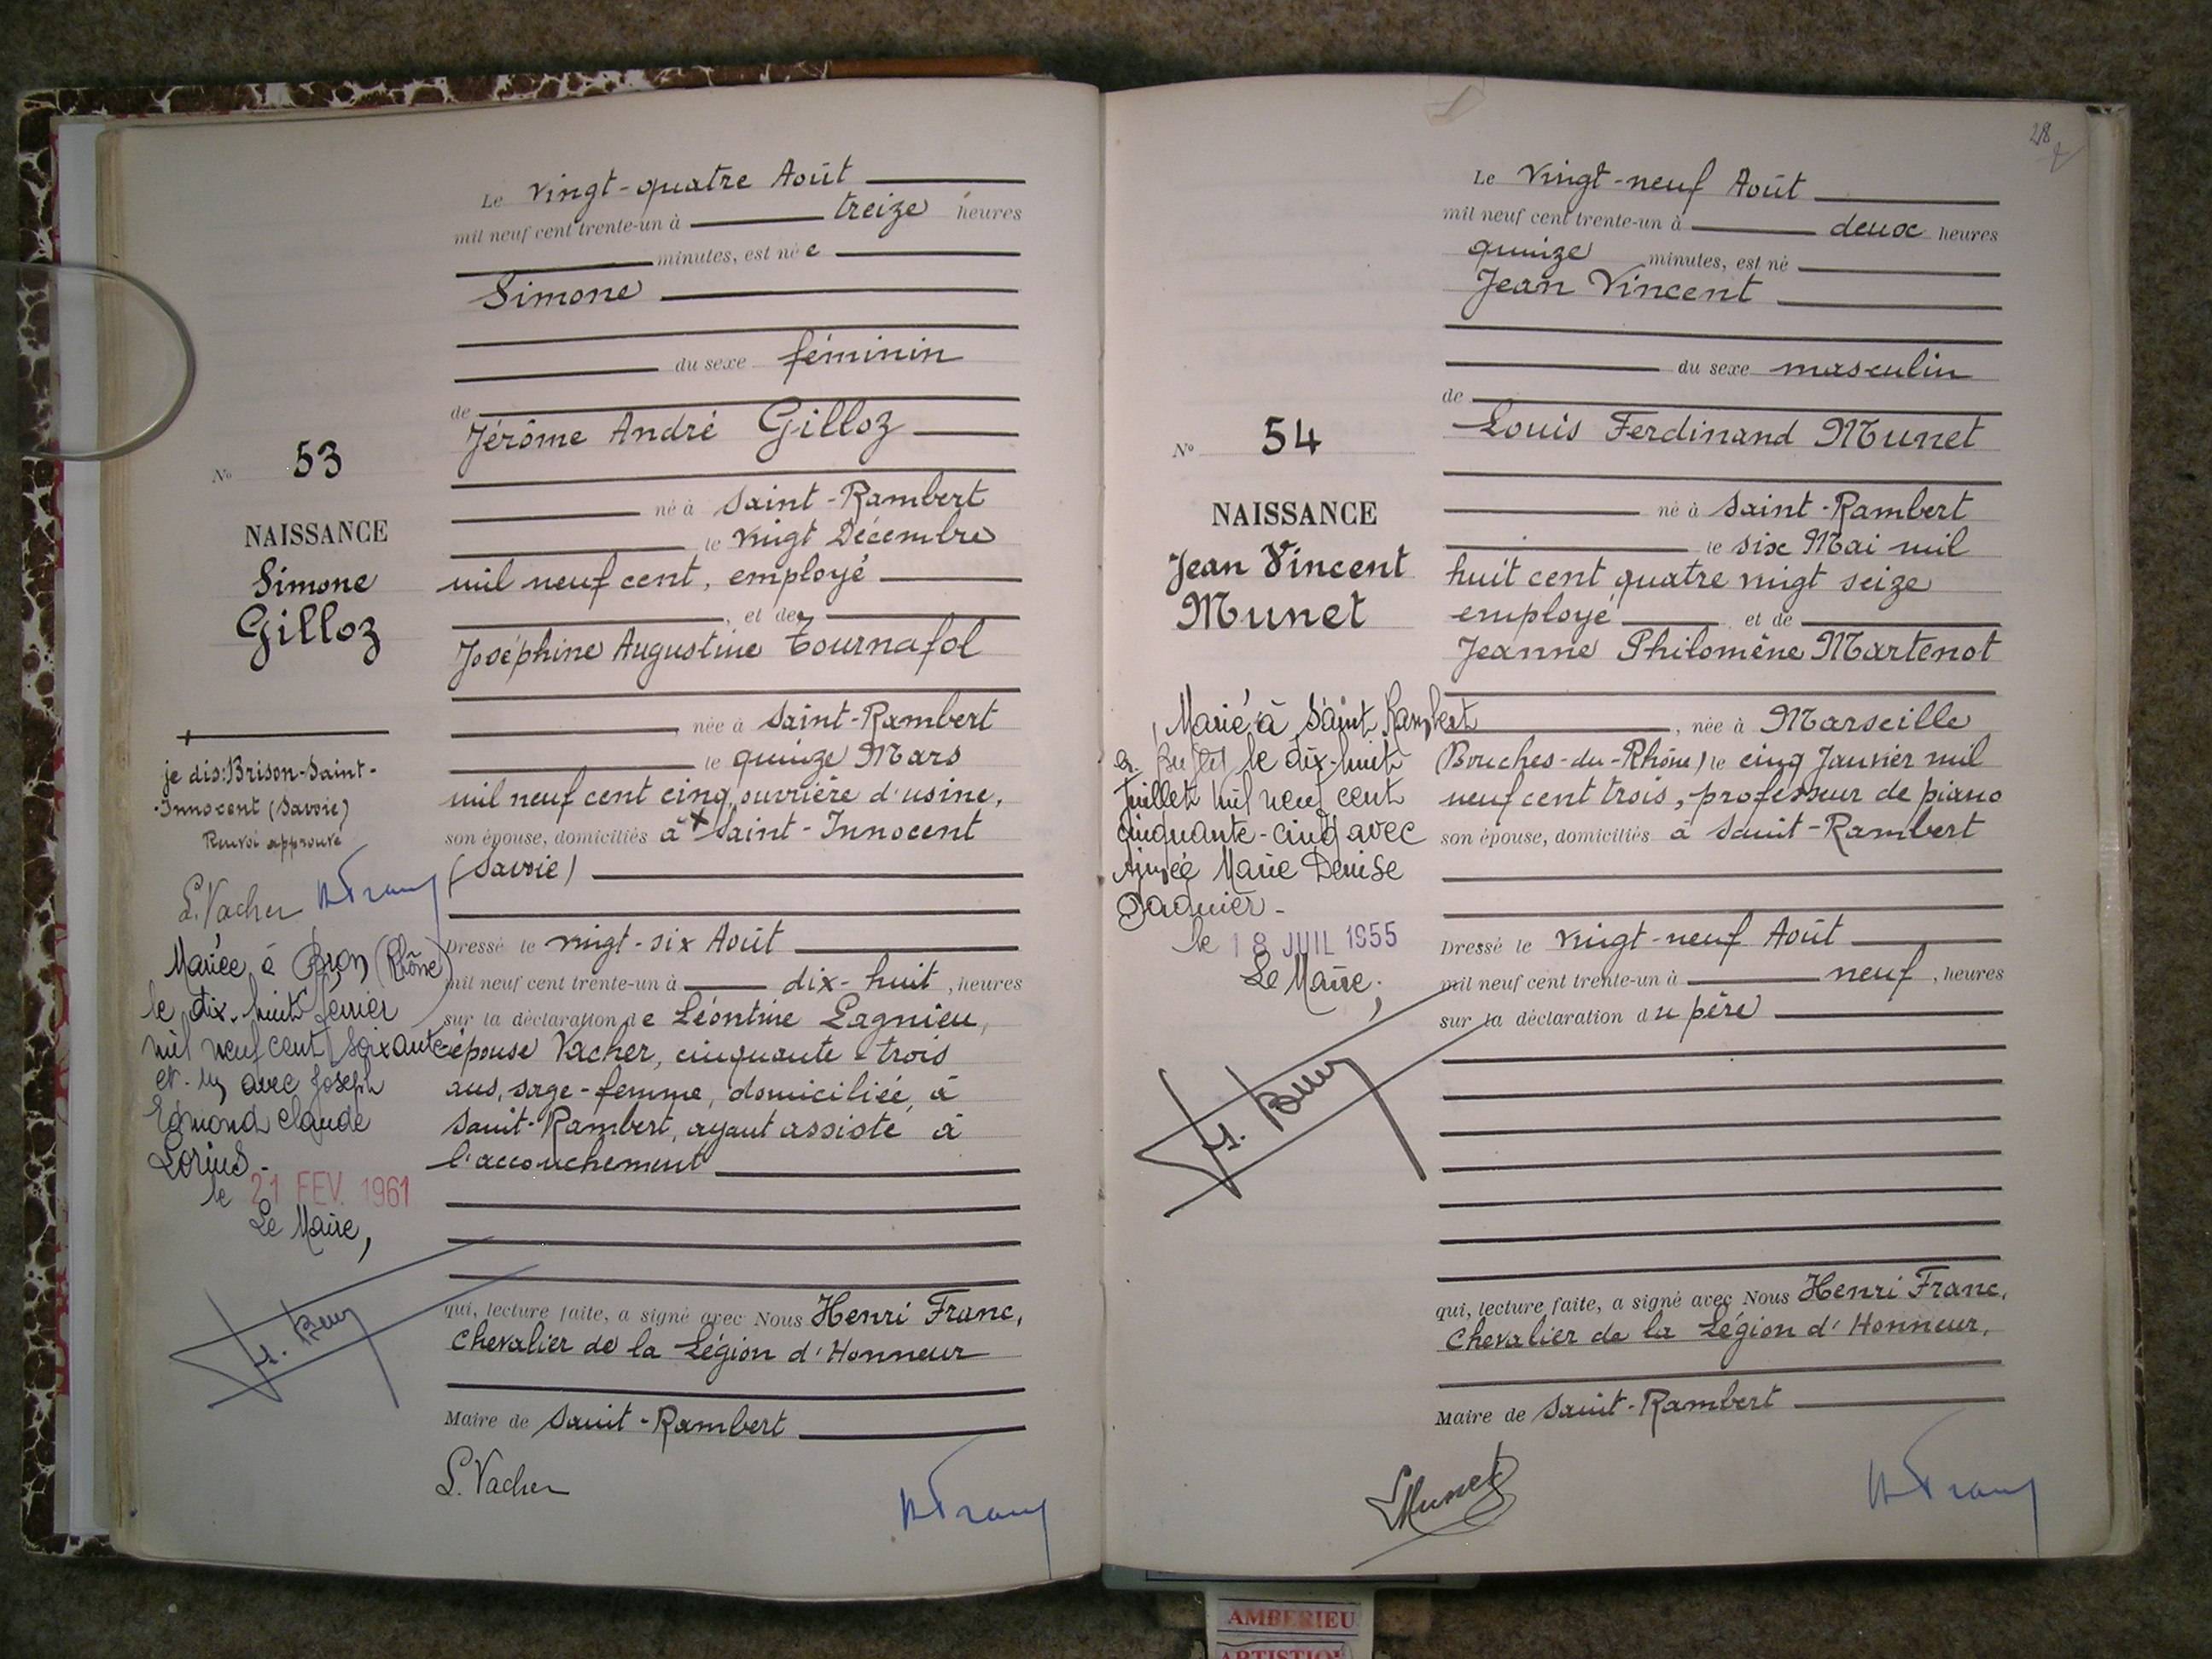 Le vingt-quatre Août
mil neuf cent trente-un à treize heures
minutes, est née
Simone
du sexe féminin
de
Jérôme André Gilloz
né à Saint-Rambert
le vingt Décembre
mil neuf cent, employé
, et de
Joséphine Augustine Tournafol
, née à Saint-Rambert
le quinze Mars
mil neuf cent cinq, ouvrière d'usine,
son épouse, domiciliés à x Saint-Innocent
(Savoie)
Dressé le vingt-six Août
mil neuf cent trente-un à dix-huit, heures
sur la déclaration de Léontine Lagnieu,
épouse Vacher, cinquante-trois
ans, sage-femme, domiciliée à
Saint-Rambert, ayant assisté à
l'accouchement
qui, lecture faite, a signé avec Nous Henri Franc,
Chevalier de la Légion d'Honneur
Maire de Saint-Rambert
L. Vacher
H Franc
No 53
NAISSANCE
Simone
Gilloz
je dis: Brison-Saint-
-Innocent (Savoie)
Renvoi approuvé
L. Vacher H Franc
Mariée à Bron (Rhône)
le dix-huit février
mil neuf cent soixante
et-un avec Joseph
Edmond Claude
Lorius-
le 21 FEV. 1961
Le Maire,
28
Le vingt-neuf Août
mil neuf cent trente-un à deux heures
quinze minutes, est né
Jean Vincent
du sexe masculin
de
Louis Ferdinand Munet
né à Saint-Rambert
le six Mai mil
huit cent quatre vingt seize
employé et de
Jeanne Philomène Martenot
, née à Marseille
(Bouches-du-Rhône) le cinq Janvier mil
neuf cent trois, professeur de piano
son épouse, domiciliés à Saint-Rambert
Dressé le vingt-neuf Août
mil neuf cent trente-un à neuf, heures
sur la déclaration du père
qui, lecture faite, a signé avec Nous Henri Franc,
Chevalier de la Légion d'Honneur,
Maire de Saint-Rambert
L Munet
H Franc
No 54
NAISSANCE
Jean Vincent
Munet
Marié à Saint Rambert
le dix-huit
Juillet mil neuf cent
cinquante-cinq avec
Aimée Marie Denise
le 18 JUIL 1955
Le Maire,
AMBERIEU